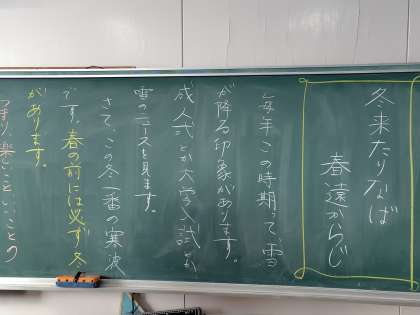 冬来たりなば
春遠からじ
毎年この時期って、雪
が降る印象があります。
成人式とか大学入試も、
雪のニュースを見ます。
さて、この冬一番の寒波
です。春の前には必ず冬
があります。
つまり、楽しいこと